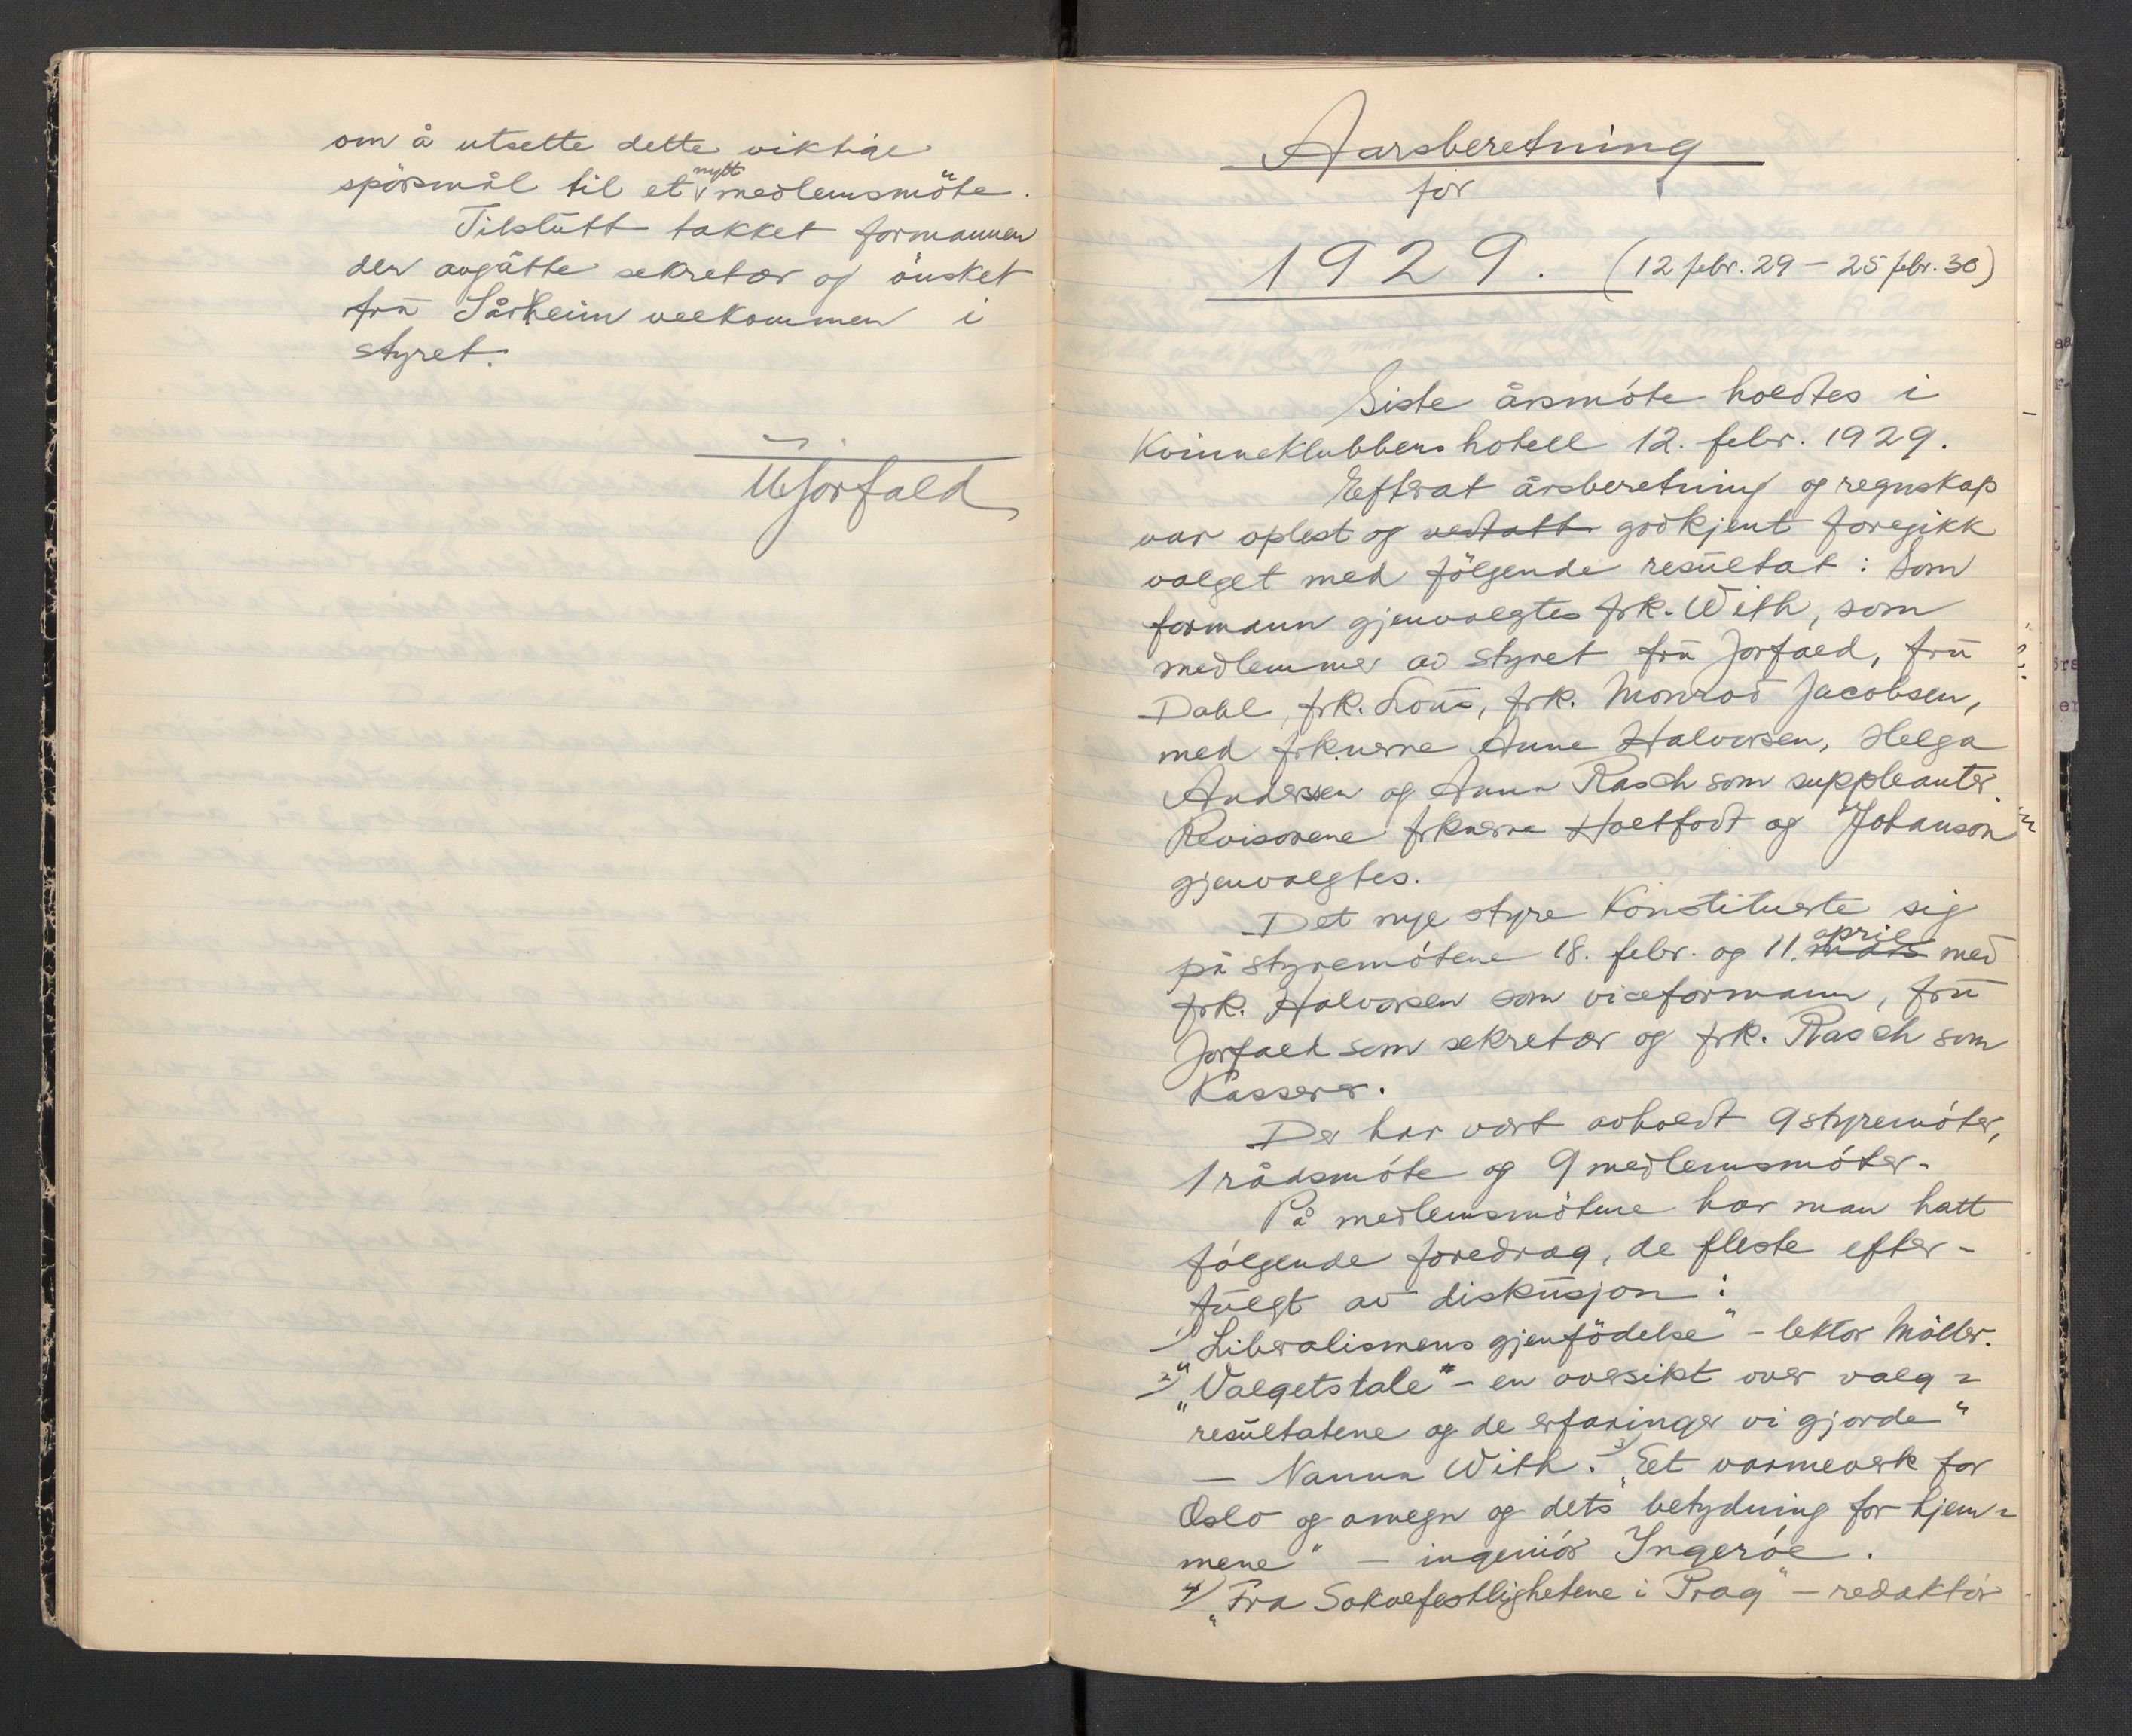 om å utsette dette viktige
spörsmål til et nytt medlemsmöte.
Tilslutt takket formannen
den avgåtte sekretær og önsket
fru Sårheim velkommen i
styret.
Jorfald
Aarsberetning
for
1929. (12 febr. 29 – 25 febr. 30)
Siste årsmöte holdtes i
Kvinneklubbens hotell 12. febr. 1929.
Efterat årsberetning og regnskap
var oplest og vedtatt godkjent foregikk
valget med fölgende resultat: Som
formann gjenvalgtes frk. With, som
medlemmer av styret fru Jorfald, fru
Dahl, frk. Lous, frk. Monrad Jacobsen,
med frknerne Anne Halvorsen, Helga
Andersen og Anna Rasch som suppleanter.
Revisorene frknerne Holtfodt og Johanson
gjenvalgtes.
Det nye styre konstituerte sig
på styremötene 18. febr. og 11. mars april med
frk. Halvorsen som viceformann, fru
Jorfald som sekretær og frk. Rasch som
Kasserer.
Der har vært avholdt 9 styremöter,
1 rådsmöte og 9 medlemsmöter.
På medlemsmötene har man hatt
fölgende foredrag, de fleste efter-
fulgt av diskusjon:
1) „Liberalismens gjenfödelse" – lektor Möller.
2) „Valgets tale" – en oversikt over valg=
resultatene og de erfaringer vi gjorde"
– Nanna With. 3) „Et varmeverk for
Oslo og omegn og dets betydning for hjem=
mene" – ingeniör Ingeröe.
4) „Fra Sokolfestlighetene i Prag" – redaktör